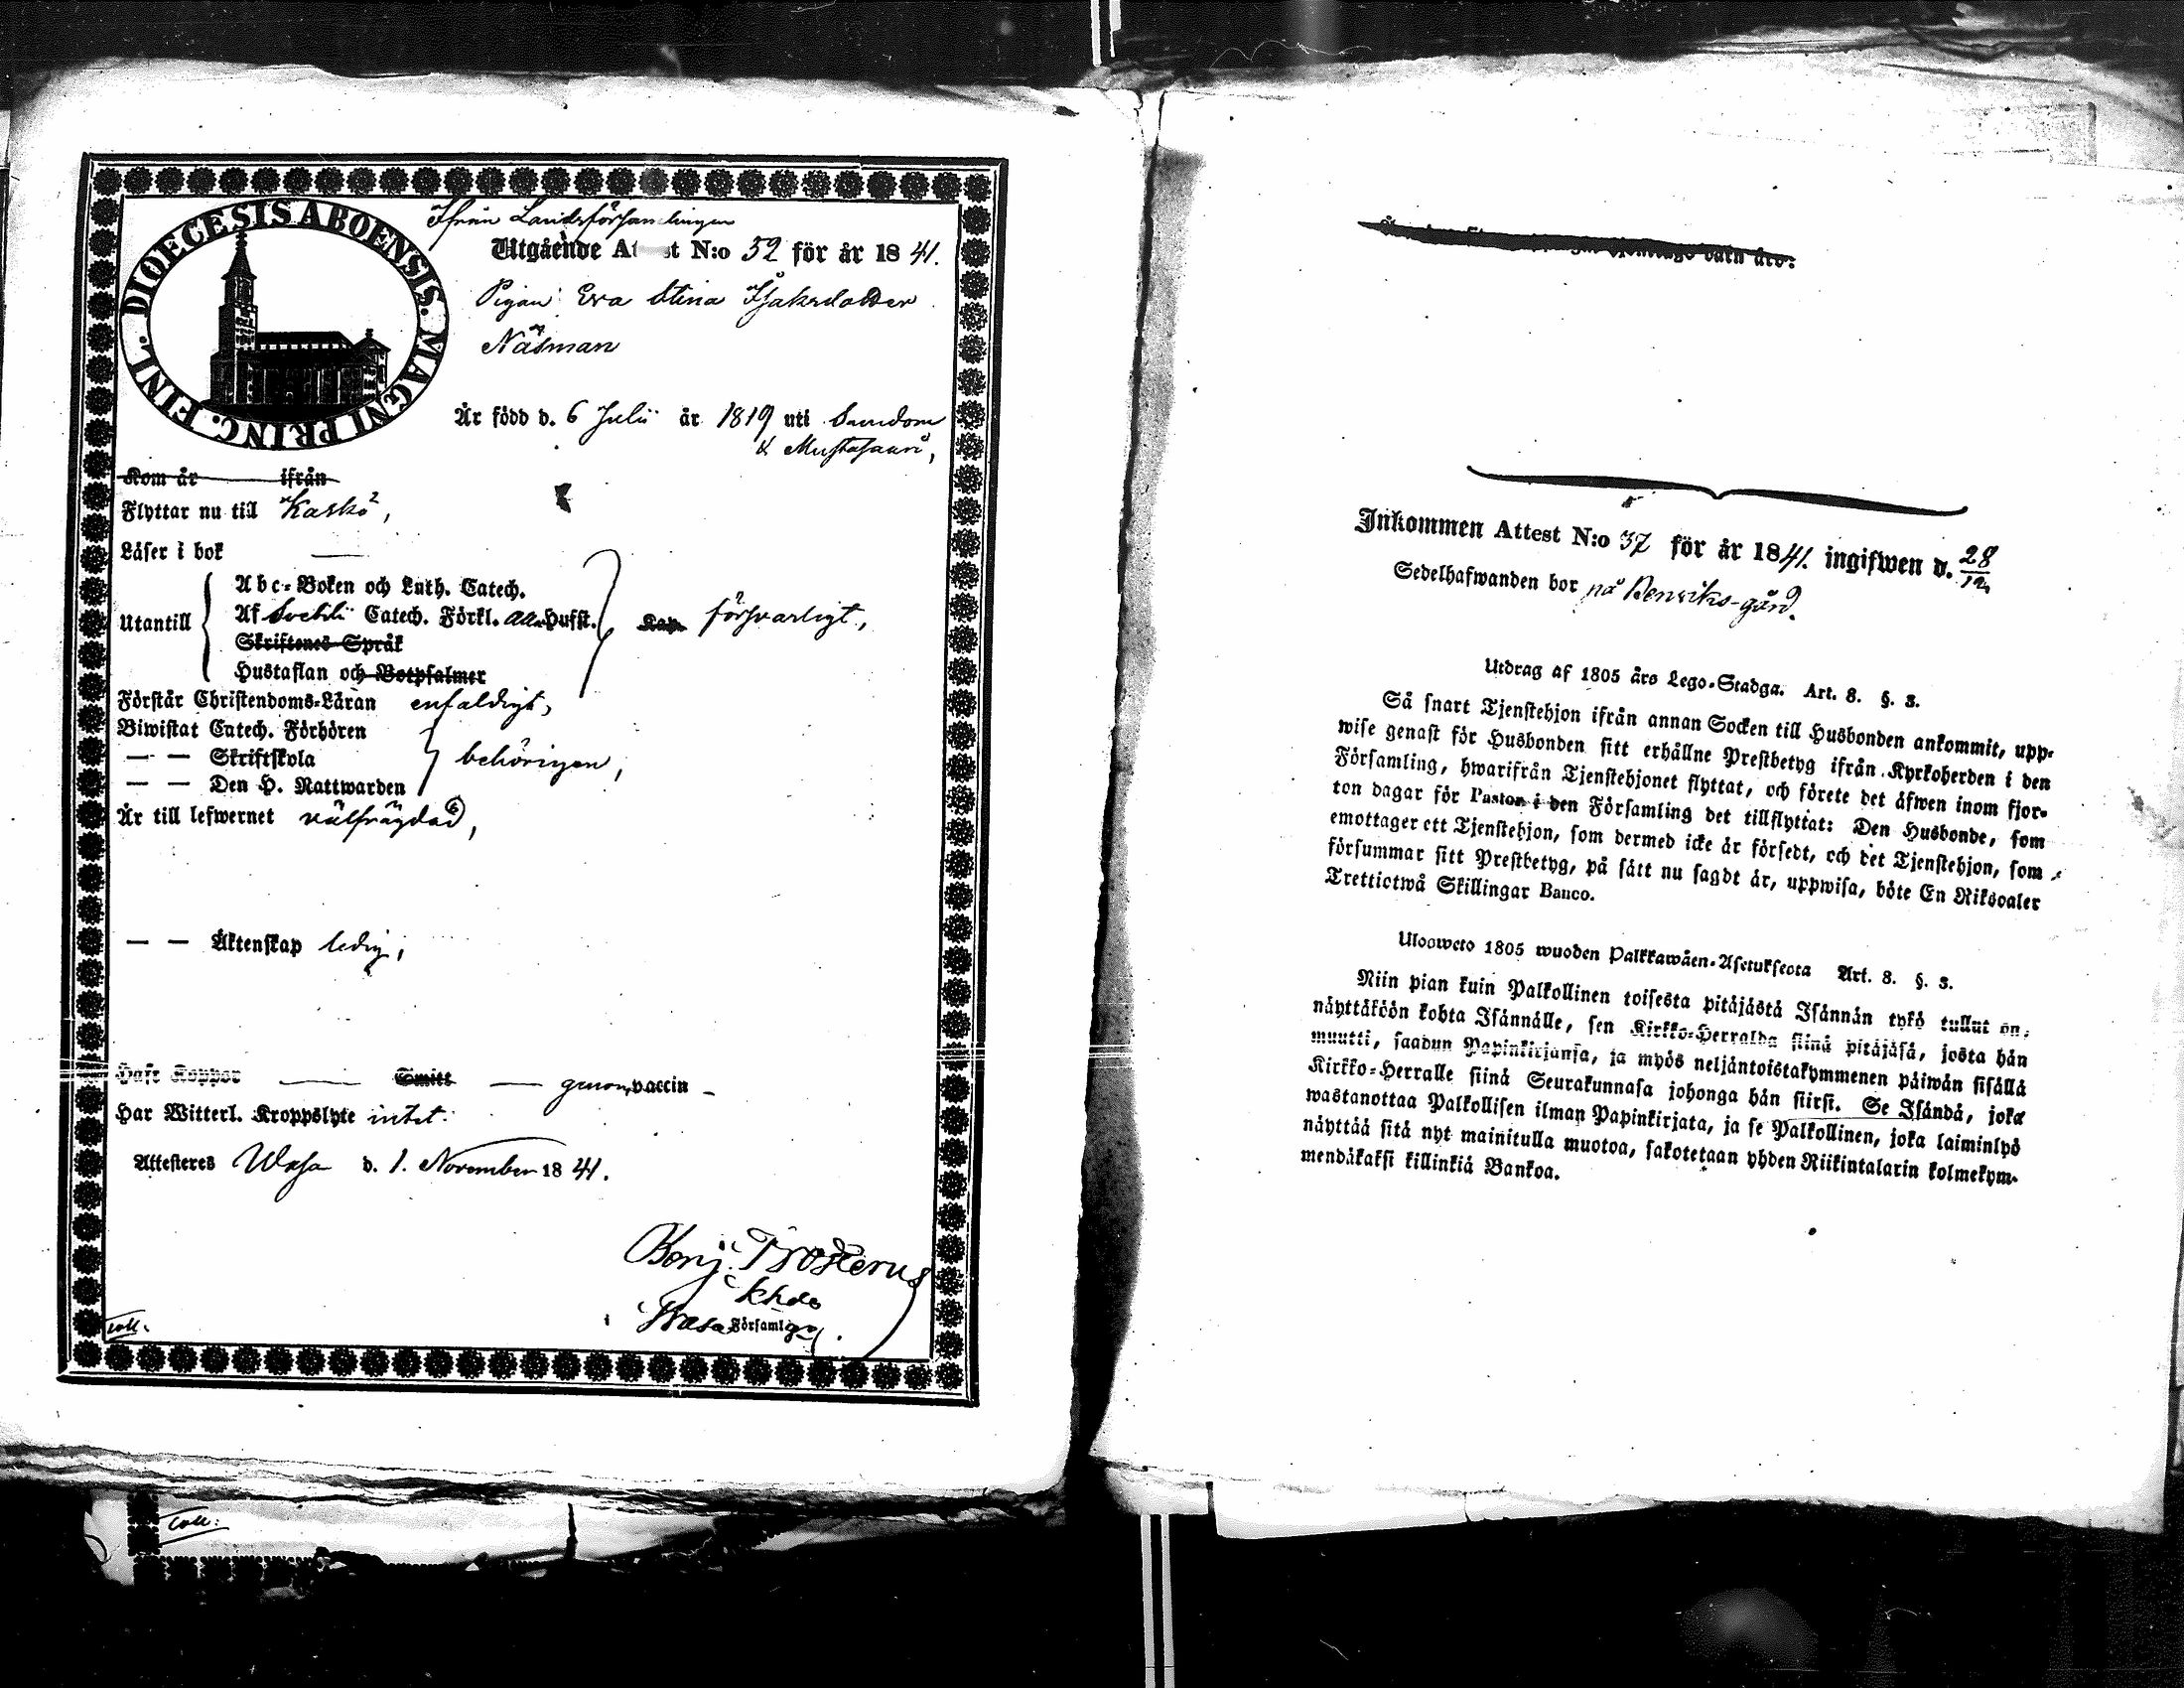 DIOECESIS ABOENSIS. MAGNI PRINC. FINL.
Ifrån Landsförsamlingen
Utgående At st N:o 52 för år 1841.
Pigan Eva Stina Isaksdotter
Näsman
Är född d. 6 Julii år 1819 uti Sundom
& Mustasaari,
Kom år ifrån
Flyttar nu till Kaskö,
Läser i bok —
Abc-Boken och Luth. Catech.
Utantill Af Svebilii Catech. Förkl. alla Hufst. försvarligt,
Skriftenes Språk
Hustaflan och Botpsalmer
Förstår Christendoms-Läran enfaldigt,
Biwistat Catech. Förhören
— — Skriftskola behörigen,
— — Den H. Nattwarden
Är till lefwernet välfrägdad,
— — Äktenskap ledig,
Haft Koppor — Smitt — genom vaccin –
Har Witterl. Kroppslyte intet.
Attesteras Wasa d. 1. November 1841.
Benj. Frosterus
khde
i Wasa Församlg.
Coll.
Coll:
barn äro:
Inkommen Attest N:o 37 för år 1841. ingifwen d. 28/12
Sedelhafwanden bor på Benviks-gård.
Utdrag af 1805 års Lego-Stadga. Art. 8. §. 3.
Så snart Tjenstehjon ifrån annan Socken till Husbonden ankommit, upp-
wise genast för Husbonden sitt erhållne Prestbetyg ifrån Kyrkoherden i den
Församling, hwarifrån Tjenstehjonet flyttat, och förete det äfwen inom fjor-
ton dagar för Pastor i den Församling det tillflyttat: Den Husbonde, som
emottager ett Tjenstehjon, som dermed icke är försedt, och det Tjenstehjon, som
försummar sitt Prestbetyg, på sätt nu sagdt är, uppwisa, böte En Riksdaler
Trettiotwå Skillingar Banco.
Ulosweto 1805 wuoden Palkkawäen-Asetuksesta Art. 8. §. 3.
Niin pian kuin Palkollinen toisesta pitäjästä Isännän tykö tullut on,
näyttäköön kohta Isännälle, sen Kirkko-Herralda siinä pitäjäsä, josta hän
muutti, saadun Papinkirjansa, ja myös neljäntoistakymmenen päiwän sisällä
Kirkko-Herralle siinä Seurakunnasa johonga hän siirsi. Se Isändä, joka
wastanottaa Palkollisen ilman Papinkirjata, ja se Palkollinen, joka laiminlyö
näyttää sitä nyt mainitulla muotoa, sakotetaan yhden Riikintalarin kolmekym-
mendäkaksi killinkiä Bankoa.